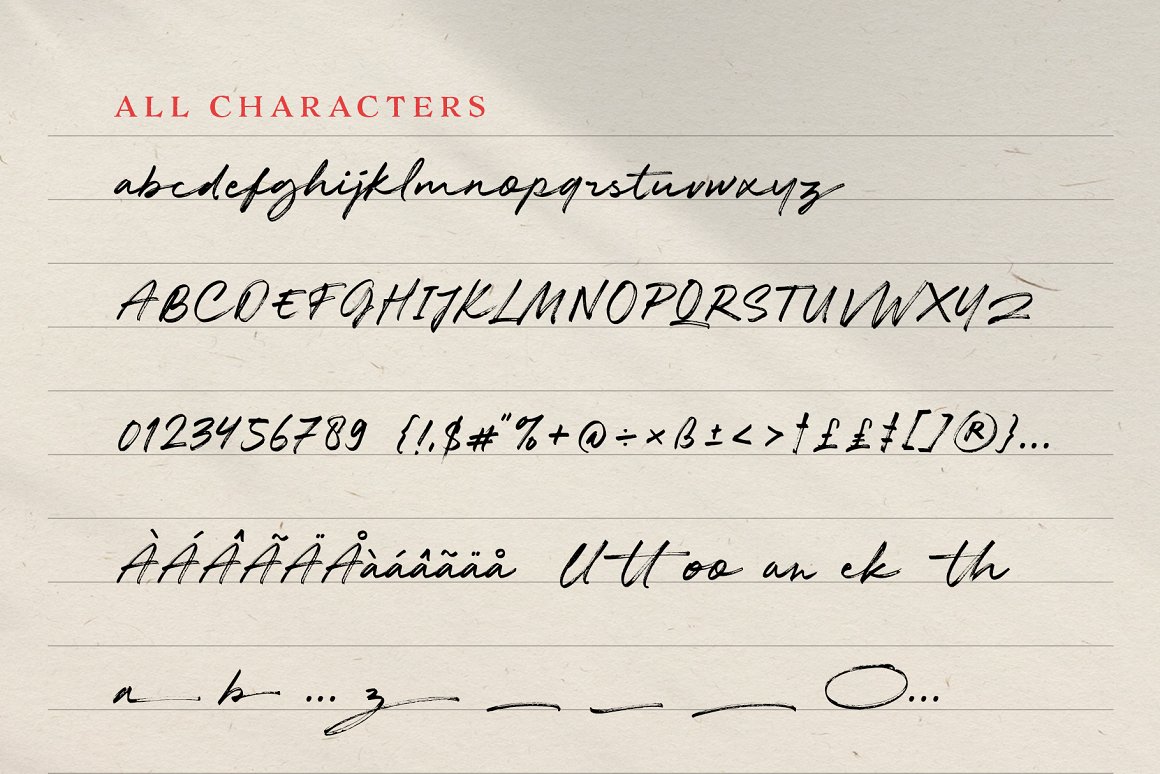 ALL CHARACTERS
abcdefghijklmnopqrstuvwxyz
ABCDEFGHIJKLMNOPQRSTUVWXYZ
0123456789 {!,$#"%+@÷×ß±<>†££‡[]®}...
ÀÁÂÃÄÅàáâãäå ll tt oo an ek th
a b ... z _ _ _ O...